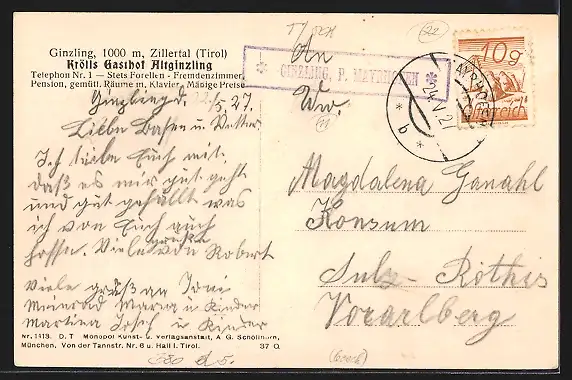 Ginzling, 1000 m, Zillertal (Tirol)
Krölls Gasthof Altginzling
Telephon Nr. 1 — Stets Forellen - Fremdenzimmer,
Pension, gemütl. Räume m. Klavier. Mäßige Preise
Ginzling d. 22/5. 27.
Liebe Basen u. Vetter
Ich teile Euch mit,
daß es mir gut geht
und gut gefällt was
ich von Euch auch
hoffe. Viele grüße
von Robert
Viele grüß an Toni
Meinrad Maria u Kinder
Martina Josef u Kinder
Nr. 1413. D. T Monopol Kunst- u. Verlagsanstalt, A. G. Schöllhorn,
München. Von der Tannstr. Nr. 6 u. Hall i. Tirol. 37 Q
An
GINZLING, P. MAYRHOFEN
10g
Österreich
* b *
Magdalena Ganahl
Konsum
Sulz-Röthis
Vorarlberg